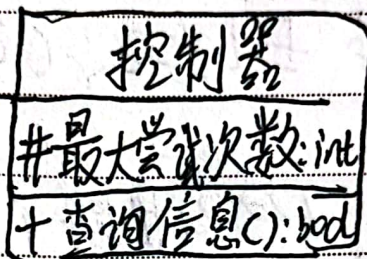 控制器
#最大尝试次数:int
+查询信息():bool